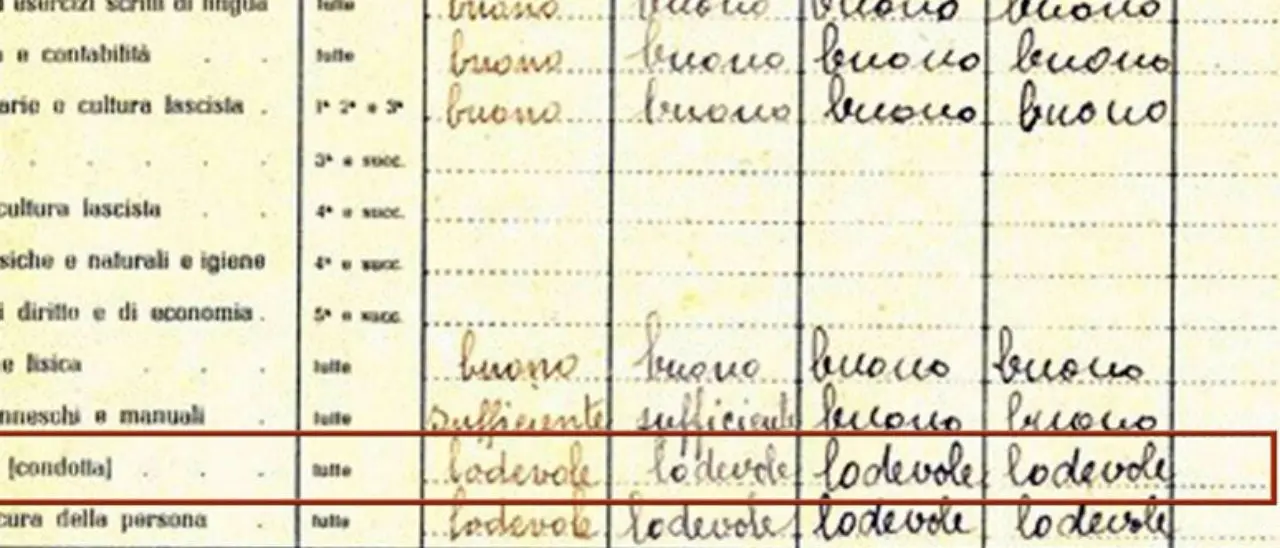 esercizi scritti di lingua tutte buono buono buono buono
e contabilità . . tutte buono buono buono buono
ario e cultura fascista . 1ª 2ª e 3ª buono buono buono buono
. . . . . 3ª e succ.
cultura fascista . . 4ª e succ.
siche e naturali e igiene 4ª e succ.
i diritto e di economia . 5ª e succ.
e fisica . . . tutte buono buono buono buono
nneschi e manuali . tutte sufficiente sufficiente buono buono
[condotta] . . . tutte lodevole lodevole lodevole lodevole
cura della persona . tutte lodevole lodevole lodevole lodevole